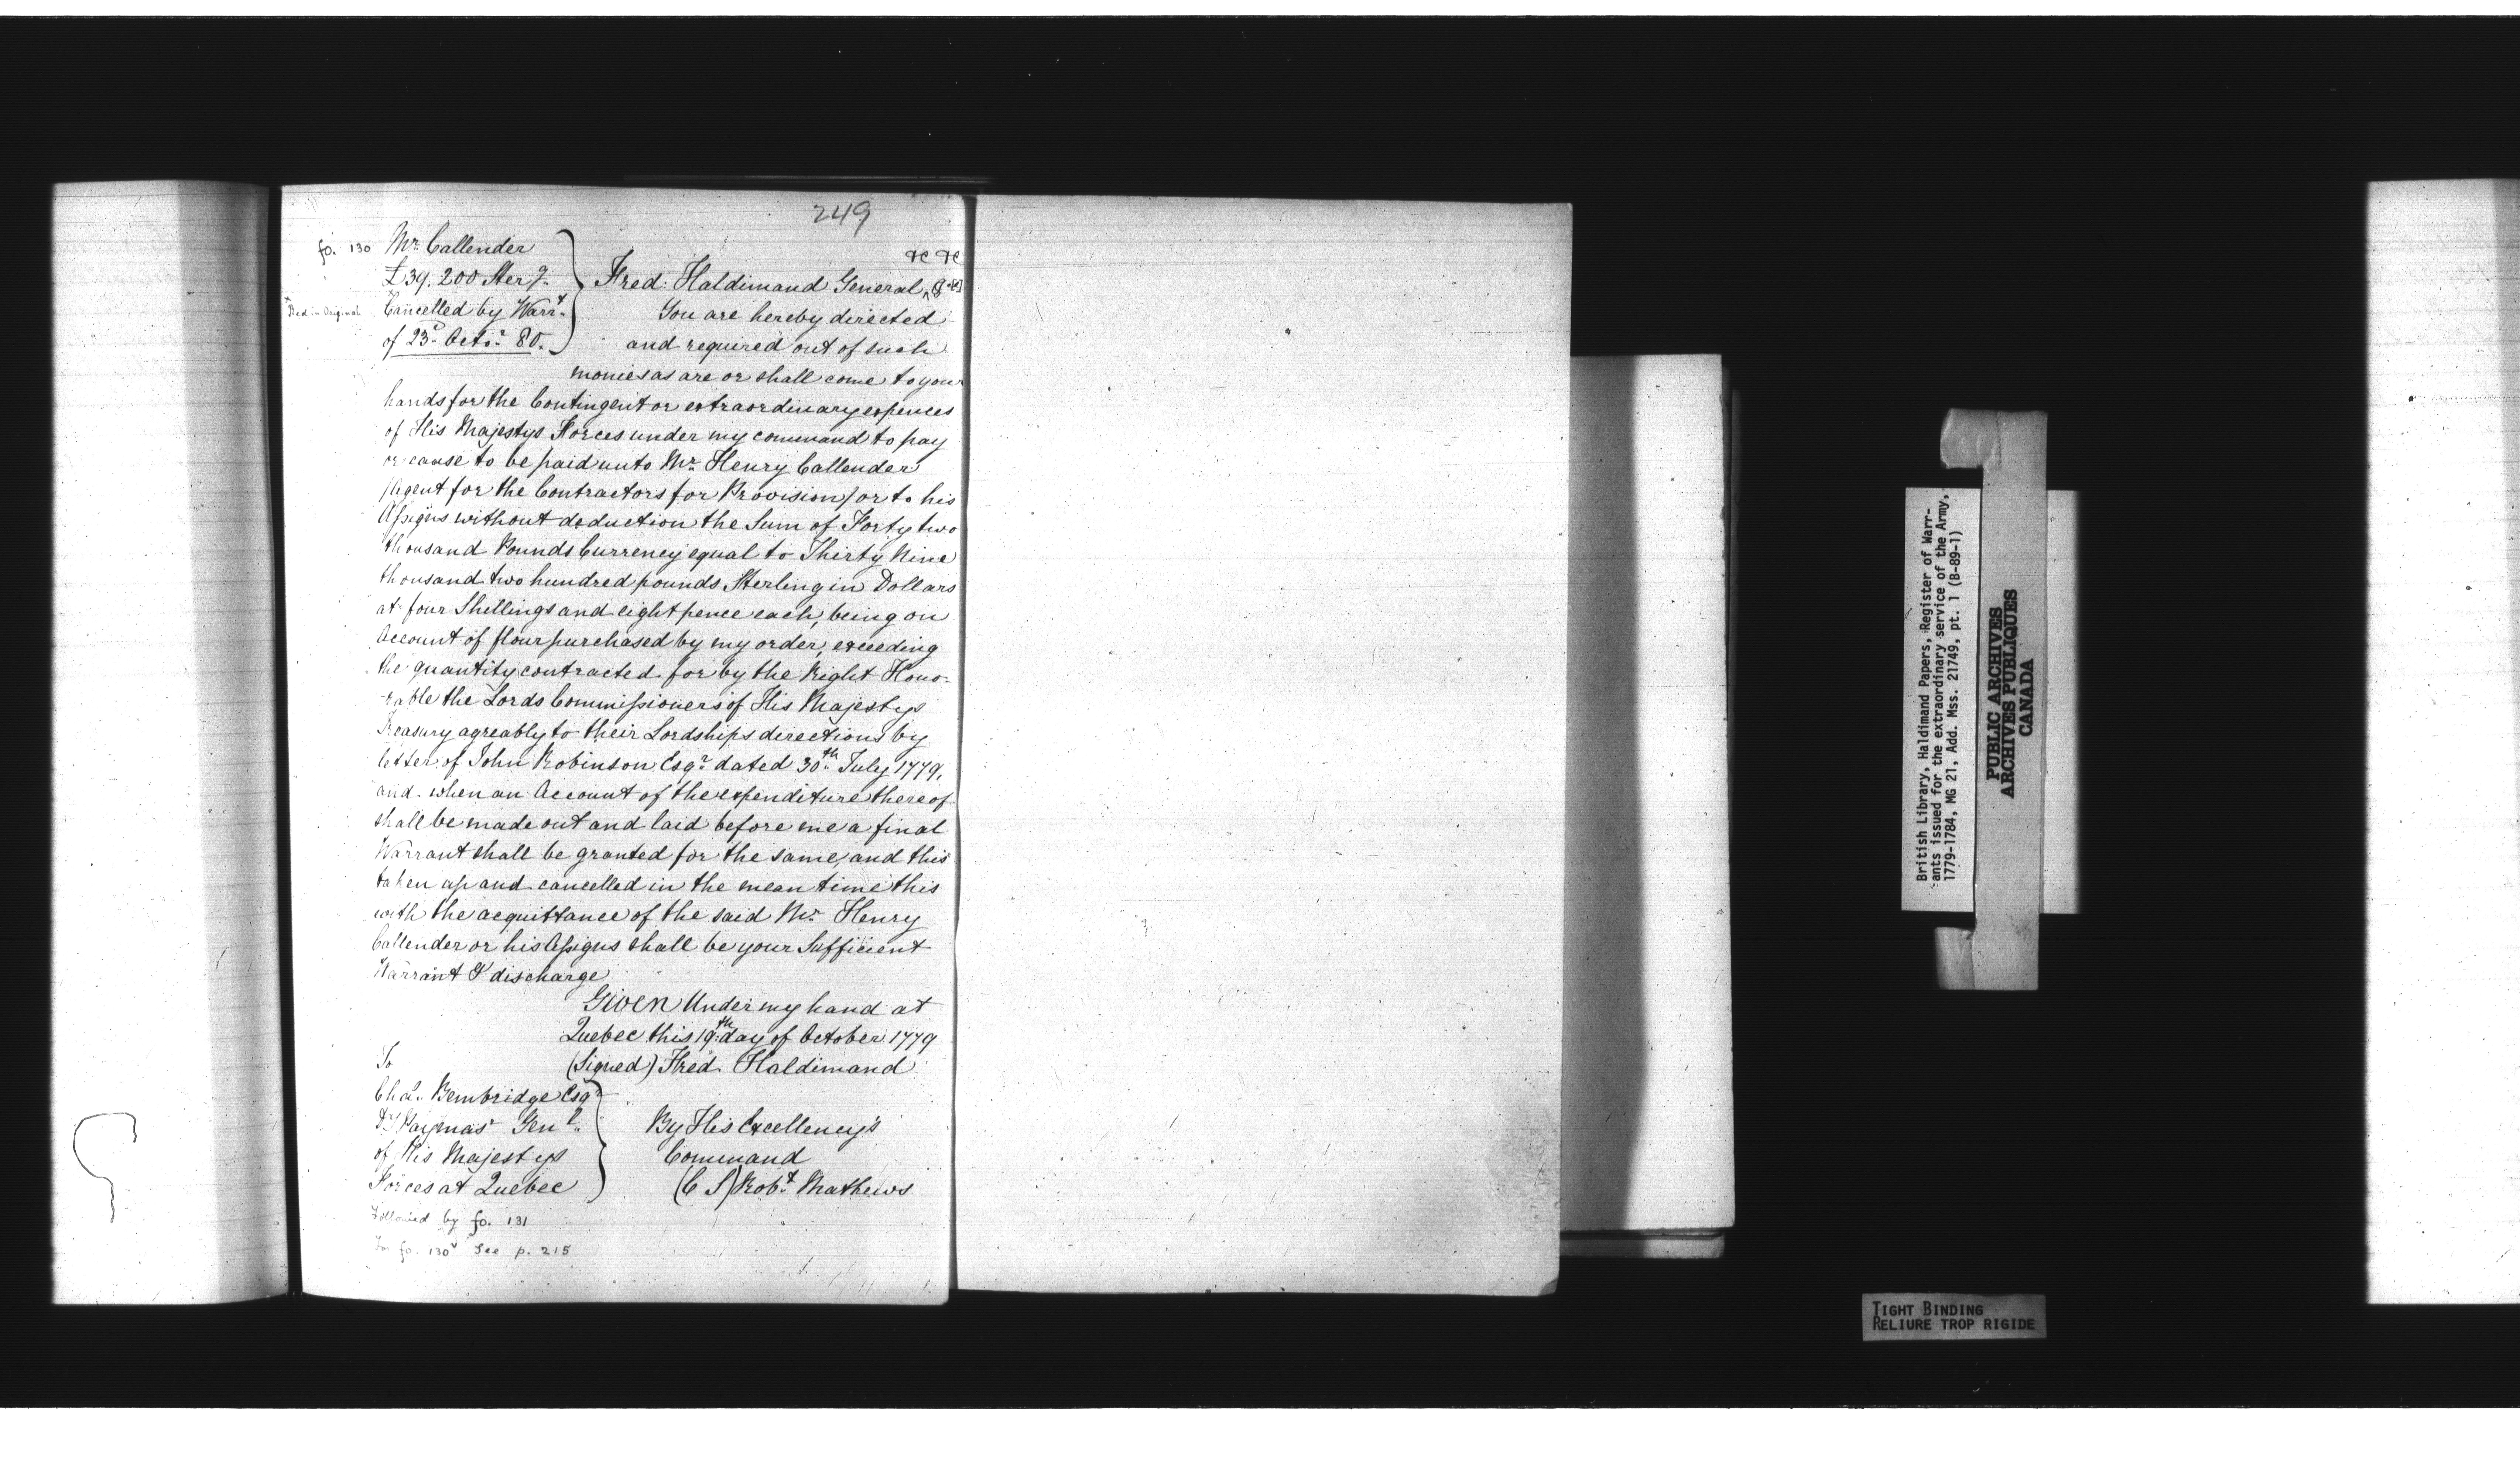 249
fo. 130 Mr. Callender
£39,200 Sterg.
*Red in Original *Cancelled by Warrt.
of 23d. Octor. 80.
&c &c
Fred: Haldimand General, &c
You are hereby directed
and required out of such
monies as are or shall come to your
hands for the Contingent or extraordinary expences
of His Majestys Forces under my command to pay
or cause to be paid unto Mr. Henry Callender
/Agent for the Contractors for Provision/ or to his
Assigns without deduction the Sum of Forty two
thousand Pounds Currency equal to Thirty Nine
thousand two hundred pounds Sterling in Dollars
at four Shillings and eight pence each, being on
Account of flour purchased by my order, exceeding
the quantity contracted for by the Right Hono-
-rable the Lords Commissioners of His Majestys
Treasury agreably to their Lordships directions by
letter of John Robinson Esqr. dated 30th. July 1779,
and when an Account of the expenditure thereof
shall be made out and laid before me a final
Warrant shall be granted for the same, and this
taken up and cancelled in the mean time this
with the acquittance of the said Mr. Henry
Callender or his Assigns shall be your Sufficient
Warrant & discharge
Given Under my hand at
Quebec this 19th. day of October 1779
(Signed) Fred. Haldimand
To
Chas. Bembridge Esqr.
Dy Paymasr Genl.
of His Majestys
Forces at Quebec
By His Excellency's
Command
(C S) Robt. Mathews
Followed by fo. 131
For fo. 130v See p. 215
British Library, Haldimand Papers, Register of Warr-
ants issued for the extraordinary service of the Army,
1779-1784, MG 21, Add. Mss. 21749, pt. 1 (B-89-1)
PUBLIC ARCHIVES
ARCHIVES PUBLIQUES
CANADA
TIGHT BINDING
RELIURE TROP RIGIDE